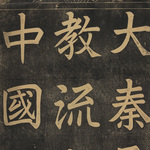 大秦
教流
中國